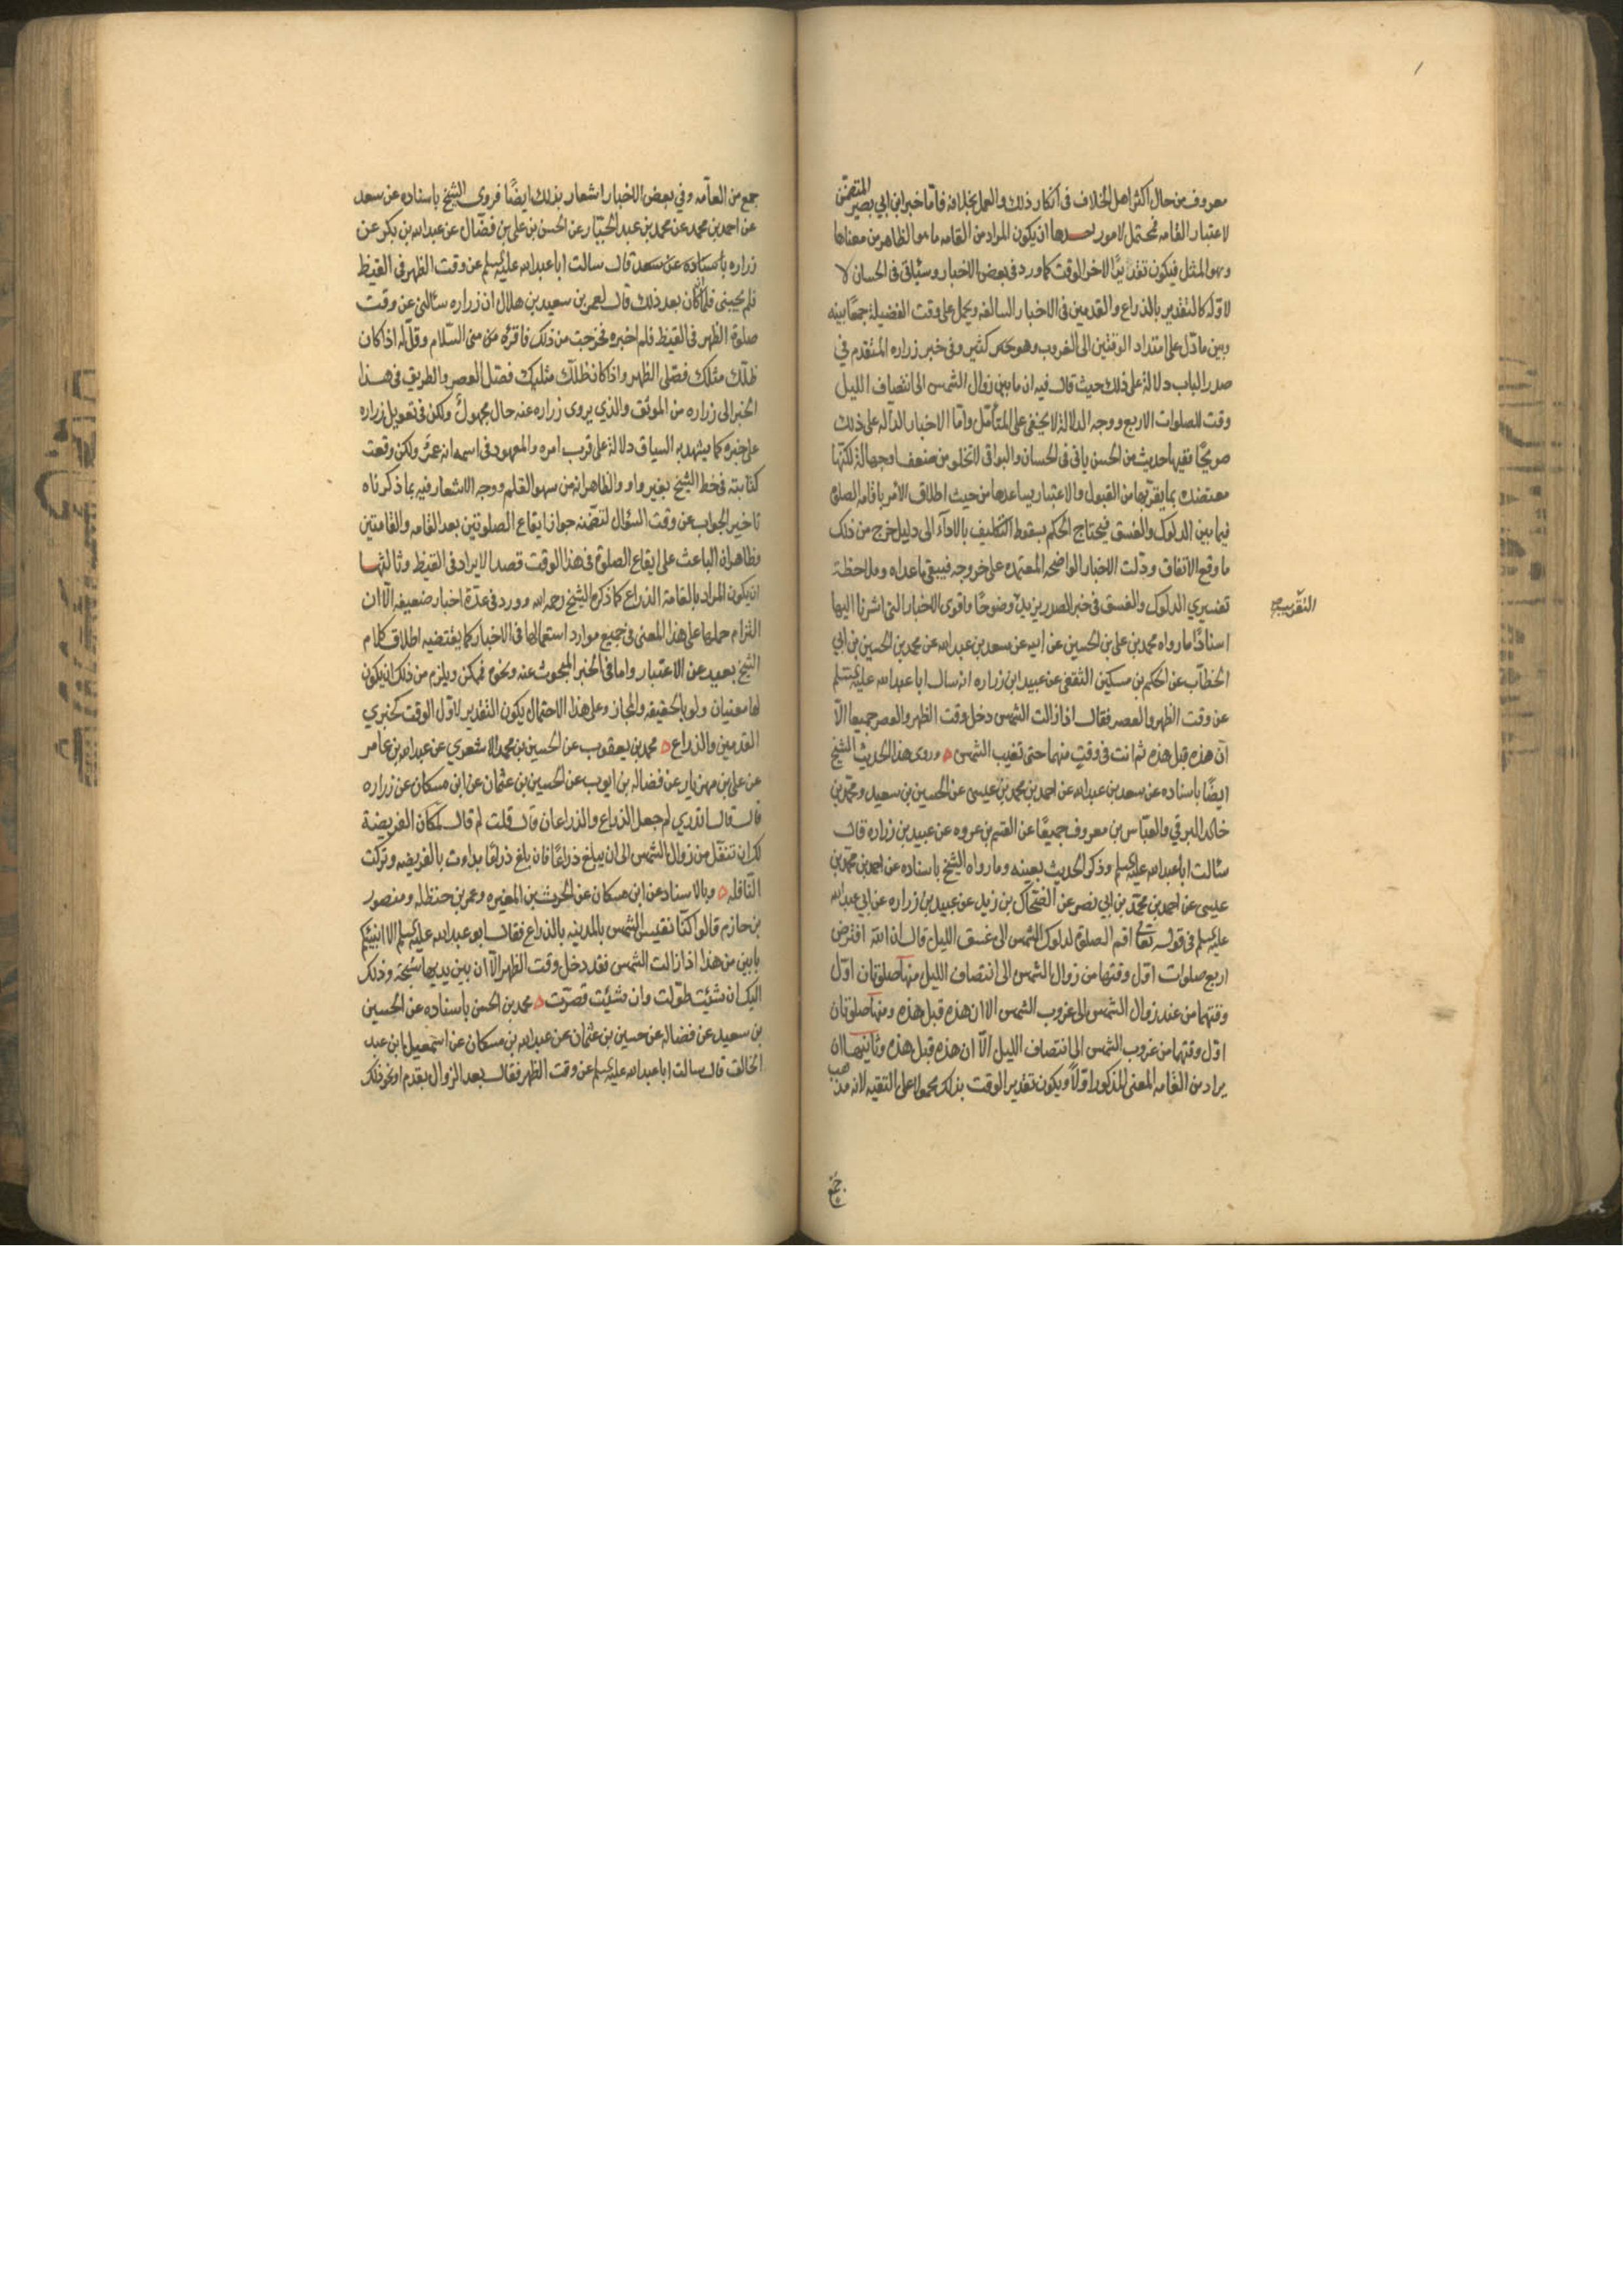 معروف من حال اكثر اهل الخلاف في انكار ذلك والعمل بخلافه فاما خبر ابن ابي بصير المتضمن
لاعتبار القامه فمحتمل لامور احدها ان يكون المراد من القامه ما هو الظاهر من معناها
وهو المثل فيكون تقديرًا لاخر الوقت كما ورد في بعض الاخبار وسيأتي في الحسان لا
لاوله كالتقدير بالذراع والقدمين في الاخبار السالفه ويحمل على وقت الفضيلة جمعًا بينه
وبين ما دل على امتداد الوقتين الى الغروب وهو جدّ كثير وفي خبر زراره المتقدم في
صدر الباب دلالة على ذلك حيث قال فيه ان ما بين زوال الشمس الى انتصاف الليل
وقت للصلوات الاربع ووجه الدلالة لا يخفى على المتأمل واما الاخبار الدالة على ذلك
صريحًا ففيها حديث من الحسن ياتي في الحسان والبواقي لا تخلو من ضعف او جهالة لكنها
معتضدة بما يقربها من القبول والاعتبار يساعدها من حيث اطلاق الامر باقامه الصلوة
فيما بين الدلوك والغسق فيحتاج الحكم بسقوط التكليف بالاداء الى دليل خرج من ذلك
ما وقع الاتفاق ودلت الاخبار الواضحه المعتمده على خروجه فيبقى ما عداه وملاحظة
التقريب صح
تفسيري الدلوك والغسق في خبر الصدر يزيد وضوحًا واقوى الاخبار التي اشرنا اليها
اسنادًا ما رواه محمد بن علي بن الحسين عن ابيه عن سعد بن عبد الله عن محمد بن الحسين بن ابي
الخطاب عن الحكم بن مسكين الثقفي عن عبيد ابن زراره انه سال ابا عبد الله عليه السلم
عن وقت الظهر والعصر فقال اذا زالت الشمس دخل وقت الظهر والعصر جميعا الا
ان هذه قبل هذه ثم انت في وقت منهما حتى تغيب الشمس ه وروى هذا الحديث الشيخ
ايضًا باسناده عن سعد بن عبد الله عن احمد بن محمد بن عيسى عن الحسين بن سعيد ومحمد بن
خالد البرقي والعباس بن معروف جميعًا عن القسم بن عروه عن عبيد بن زراره قال
سألت ابا عبد الله عليه السلم وذكر الحديث بعينه وما رواه الشيخ باسناده عن احمد بن محمد بن
عيسى عن احمد بن محمد بن ابي نصر عن الضحاك بن زيد عن عبيد بن زراره عن ابي عبد الله
عليه السلم في قوله تعالى اقم الصلوة لدلوك الشمس الى غسق الليل قال ان الله افترض
اربع صلوات اول وقتها من زوال الشمس الى انتصاف الليل منها صلوتان اول
وقتهما من عند زوال الشمس الى غروب الشمس الا ان هذه قبل هذه ومنها صلوتان
اول وقتهما من غروب الشمس الى انتصاف الليل الا ان هذه قبل هذه وثانيها ان
يراد من القامه المعنى المذكور اولًا ويكون تقدير الوقت بذلك محمولا على التقيه لانه مذهب
جمع
جمع من العامه وفي بعض الاخبار اشعار بذلك ايضًا فروى الشيخ باسناده عن سعد
عن احمد بن محمد عن محمد بن عبد الجبار عن الحسن بن علي بن فضال عن عبد الله بن بكر عن
زراره قال سالت ابا عبد الله عليه السلم عن وقت الظهر في القيظ
فلم يجبني فلما كان بعد ذلك قال لعمر بن سعيد بن هلال ان زراره سألني عن وقت
صلوة الظهر في القيظ فلم اخبره فخرجت من ذلك فاقرئه مني السلام وقل له اذا كان
ظلك مثلك فصلي الظهر واذا كان ظلك مثليك فصل العصر والطريق في هذا
الخبر الى زراره من الموثق والذي يروى زراره عنه حال مجهول ولكن في تعويل زراره
على خبره كما يشهد به السياق دلالة على قرب امره والمعهود في اسمه انه عمرو ولكن وقعت
كتابته في خط الشيخ بغير واو والظاهر انه من سهو القلم ووجه الاشعار فيه بما ذكرناه
تاخير الجواب عن وقت السؤال لتضمنه جواز ايقاع الصلوتين بعد القامه والقامتين
وظاهر ان الباعث على ايقاع الصلوة في هذا الوقت قصد الابراد في القيظ وثالثها
ان يكون المراد بالقامة الذراع كما ذكره الشيخ رحمه الله وورد في عدة اخبار ضعيفه الا ان
التزام حملها على هذا المعنى في جميع موارد استعمالها في الاخبار كما يقتضيه اطلاق كلام
الشيخ بعيد عن الاعتبار واما في الخبر المبحوث عنه ونحوه فممكن ويلزم من ذلك ان يكون
لها معنيان ولو بالحقيقه والمجاز وعلى هذا الاحتمال يكون التقدير لاول الوقت كخبري
القدمين والذراع ه محمد بن يعقوب عن الحسين بن محمد الاشعري عن عبد الله بن عامر
عن علي بن مهزيار عن فضاله بن ايوب عن الحسين بن عثمان عن ابن مسكان عن زراره
قال قال اتدري لم جعل الذراع والذراعان قال قلت لم قال لمكان الفريضة
لك ان تتنفل من زوال الشمس الى ان يبلغ ذراعًا فان بلغ ذراعًا بداءت بالفريضه وتركت
النافله ه وبالاسناد عن ابن مسكان عن الحرث بن المغيره وعمر بن حنظله ومنصور
بن حازم قالوا كنا نقيس الشمس بالمدينه بالذراع فقال ابو عبد الله عليه السلم الا انبئكم
بابين من هذا اذا زالت الشمس فقد دخل وقت الظهر الا ان بين يديها سبحة وذلك
اليك ان شئت طولت وان شئت قصرت ه محمد بن الحسن باسناده عن الحسين
بن سعيد عن فضاله عن حسين بن عثمان عن عبد الله بن مسكان عن اسمعيل بن عبد
الخالق قال سالت ابا عبد الله عليه السلم عن وقت الظهر فقال بعد الزوال بقدم او نحو ذلك